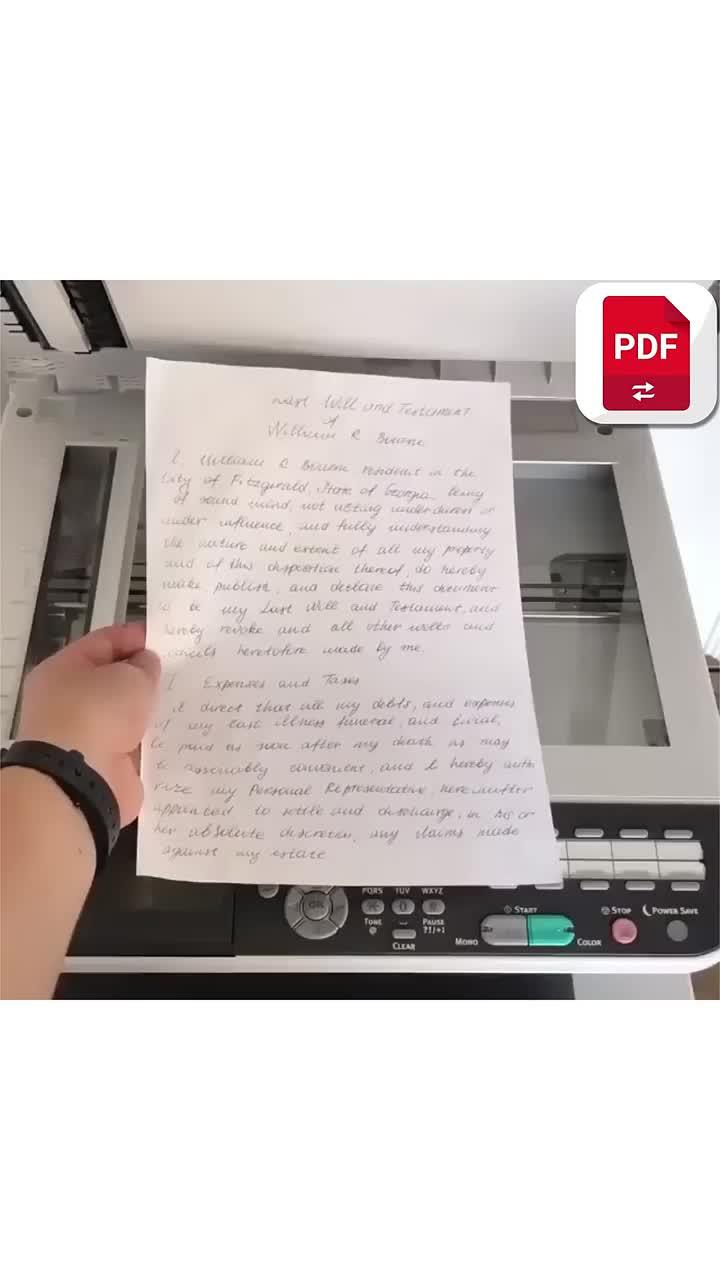 PDF
Last Will and Testament
of
William R
I, William R resident in the
City of Fitzgerald, State of Georgia, being
of sound mind, not acting under duress or
under influence, and fully understanding
the nature and extent of all my property
and of this disposition thereof, do hereby
make, publish, and declare this document
to be my Last Will and Testament, and
hereby revoke and all other wills and
codicils heretofore made by me.
I Expenses and Taxes
I direct that all my debts, and expenses
of my last illness funeral, and burial,
be paid as soon after my death as may
be reasonably convenient, and I hereby autho
rize my Personal Representative, hereinafter
appointed to settle and discharge, in his or
her absolute discretion, any claims made
against my estate
PQRS TUV WXYZ
OK
0 #
TONE PAUSE
@ ?!/+:
CLEAR
START
MONO COLOR
STOP
POWER SAVE